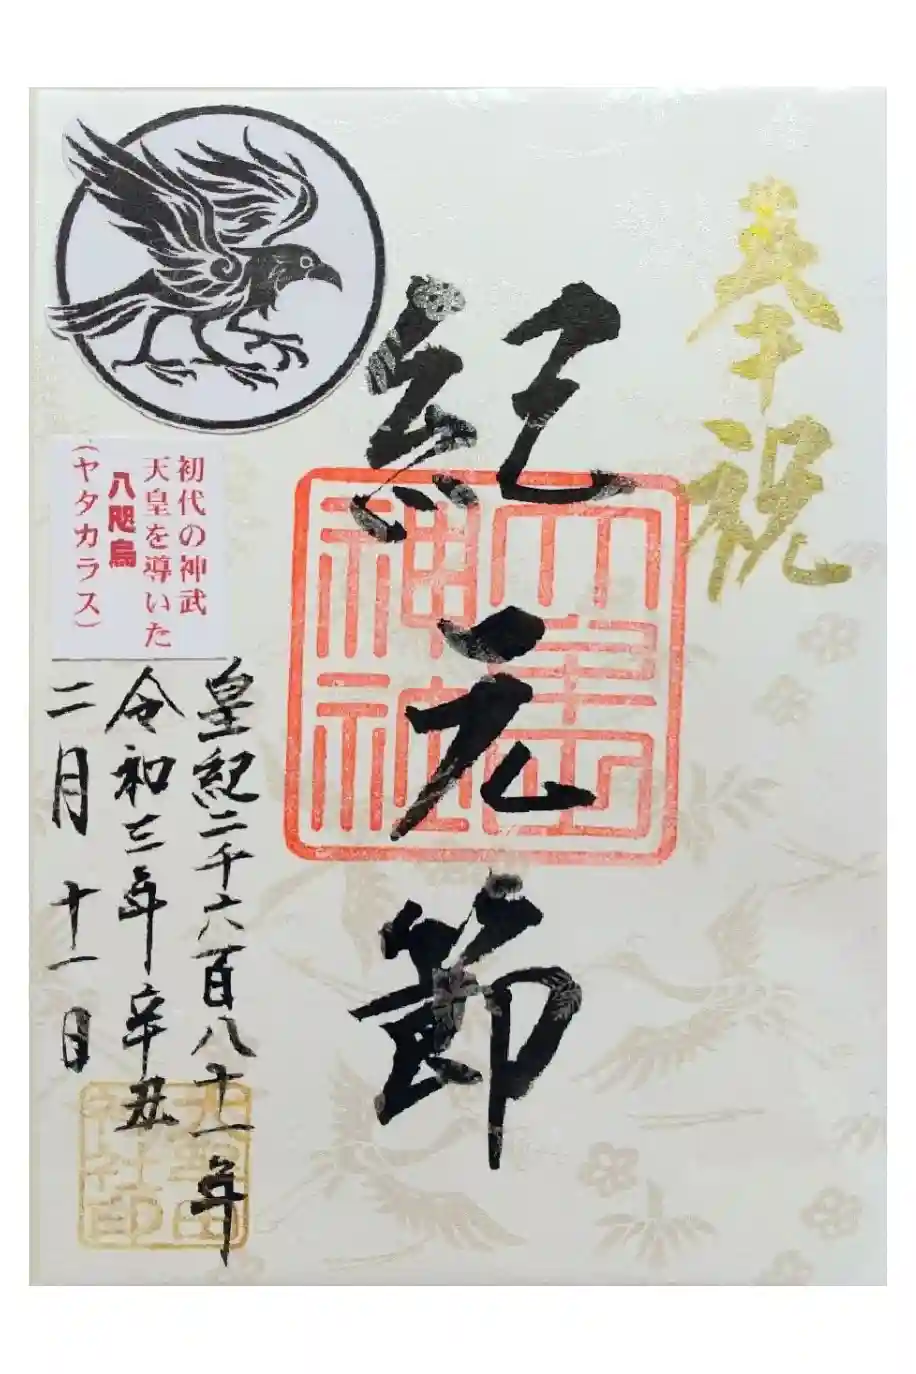 奉祝
紀元節
皇紀二千六百八十一年
令和三年辛丑
二月十一日
初代の神武
天皇を導いた
八咫烏
(ヤタカラス)
神社
神社印